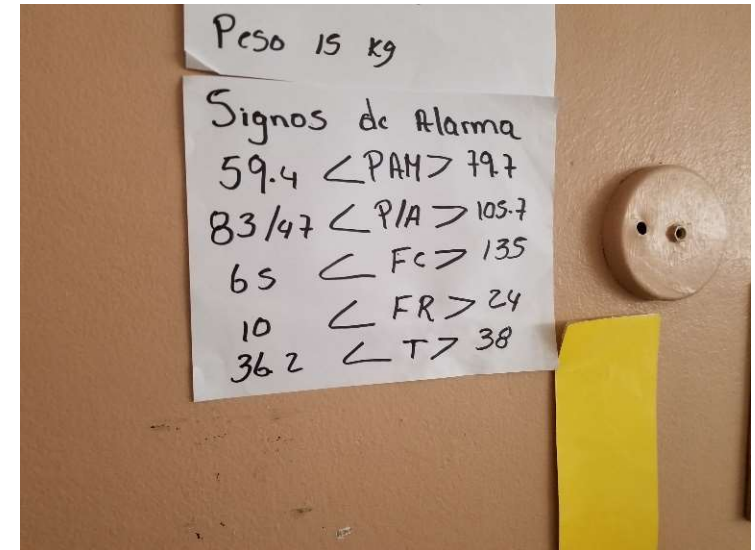 Peso 15 kg
Signos de Alarma
59.4 < PAM > 79.7
83/47 < P/A > 105.7
65 < Fc > 135
10 < FR > 24
36.2 < T > 38